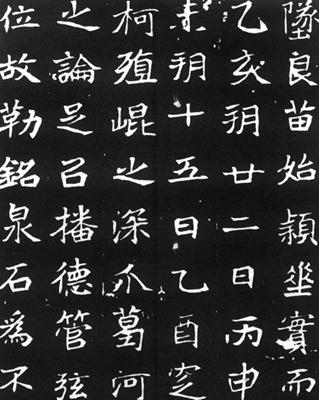 墜良苗始穎坐實而
乙亥朔廿二日丙申
未朔十五日乙酉窆
柯殖崐之深爪葛河
之論足召播德管弦
位故勒銘泉石為不